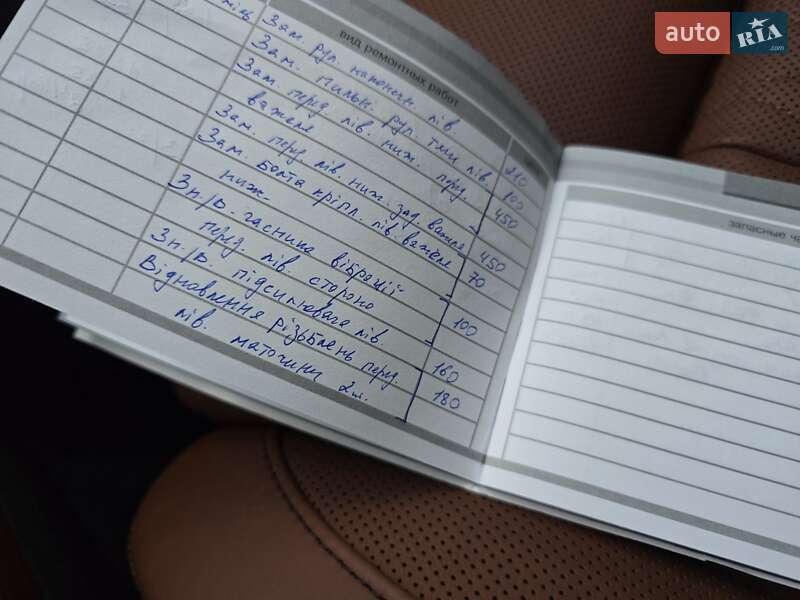 auto RIA .com
вид ремонтных работ
Зам. рул. наконечн. лів. 210
Зам. пильн. рул. тяги лів. 100
Зам. перед. лів. ниж. перед. 450
важеля
Зам. перед. лів. ниж. зад. важеля 450
Зам. болта кріпл. лів. важеля 70
ниж.
Зн./в. гасника вібрації 100
перед. лів. сторона
Зн./в. підсилювача лів. 160
Відновлення різьблень перед. 180
лів. маточини 2шт.
запасные ча